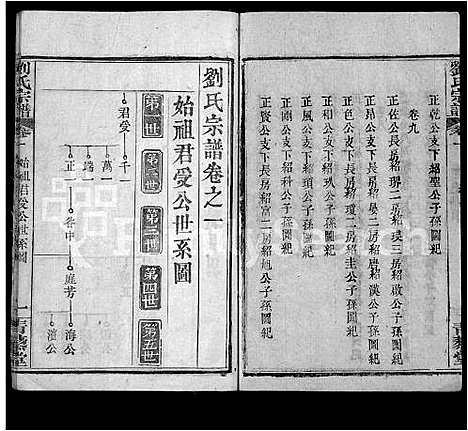 劉氏宗譜
正乾公支下紹聖公子孫圖紀
卷九
正佐公長房紹琾二房紹瑛三房紹啟公子孫圖紀
正昂公支下長房紹晏二房紹唐紹漢公子孫圖紀
正貴公支下長房紹瓊二房紹圭公子孫圖紀
正和公支下紹女紹科公子孫圖紀
正風公支下紹頊公子孫圖紀
正亘公支下紹科公子孫圖紀
正賢公支下長房紹富二房紹旭公子孫圖紀
青藜堂
劉氏宗譜卷之一
始祖君受公世系圖
第一世
第二世
第三世
第四世
第五世
君受
千一
萬一
端
正
各中
庭芳
海公
濱公
劉氏宗譜
卷一
始祖君受公世系圖
一
青藜堂